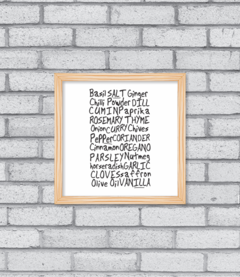 Basil SALT Ginger
Chili Powder DILL
CUMIN Paprika
ROSEMARY THYME
Onion CURRY Chives
Pepper CORIANDER
Cinnamon OREGANO
PARSLEY Nutmeg
horseradish GARLIC
CLOVES saffron
Olive Oil VANILLA